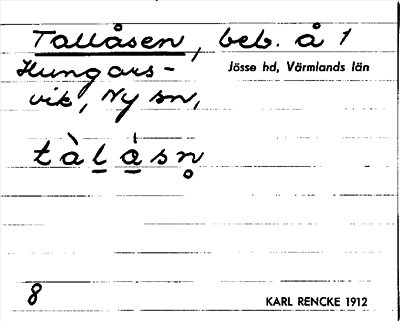 Tallåsen, beb. å 1
Hungars-
vik, Ny sn,
Jösse hd, Värmlands län
tàl̲á̲sn̥
8
KARL RENCKE 1912